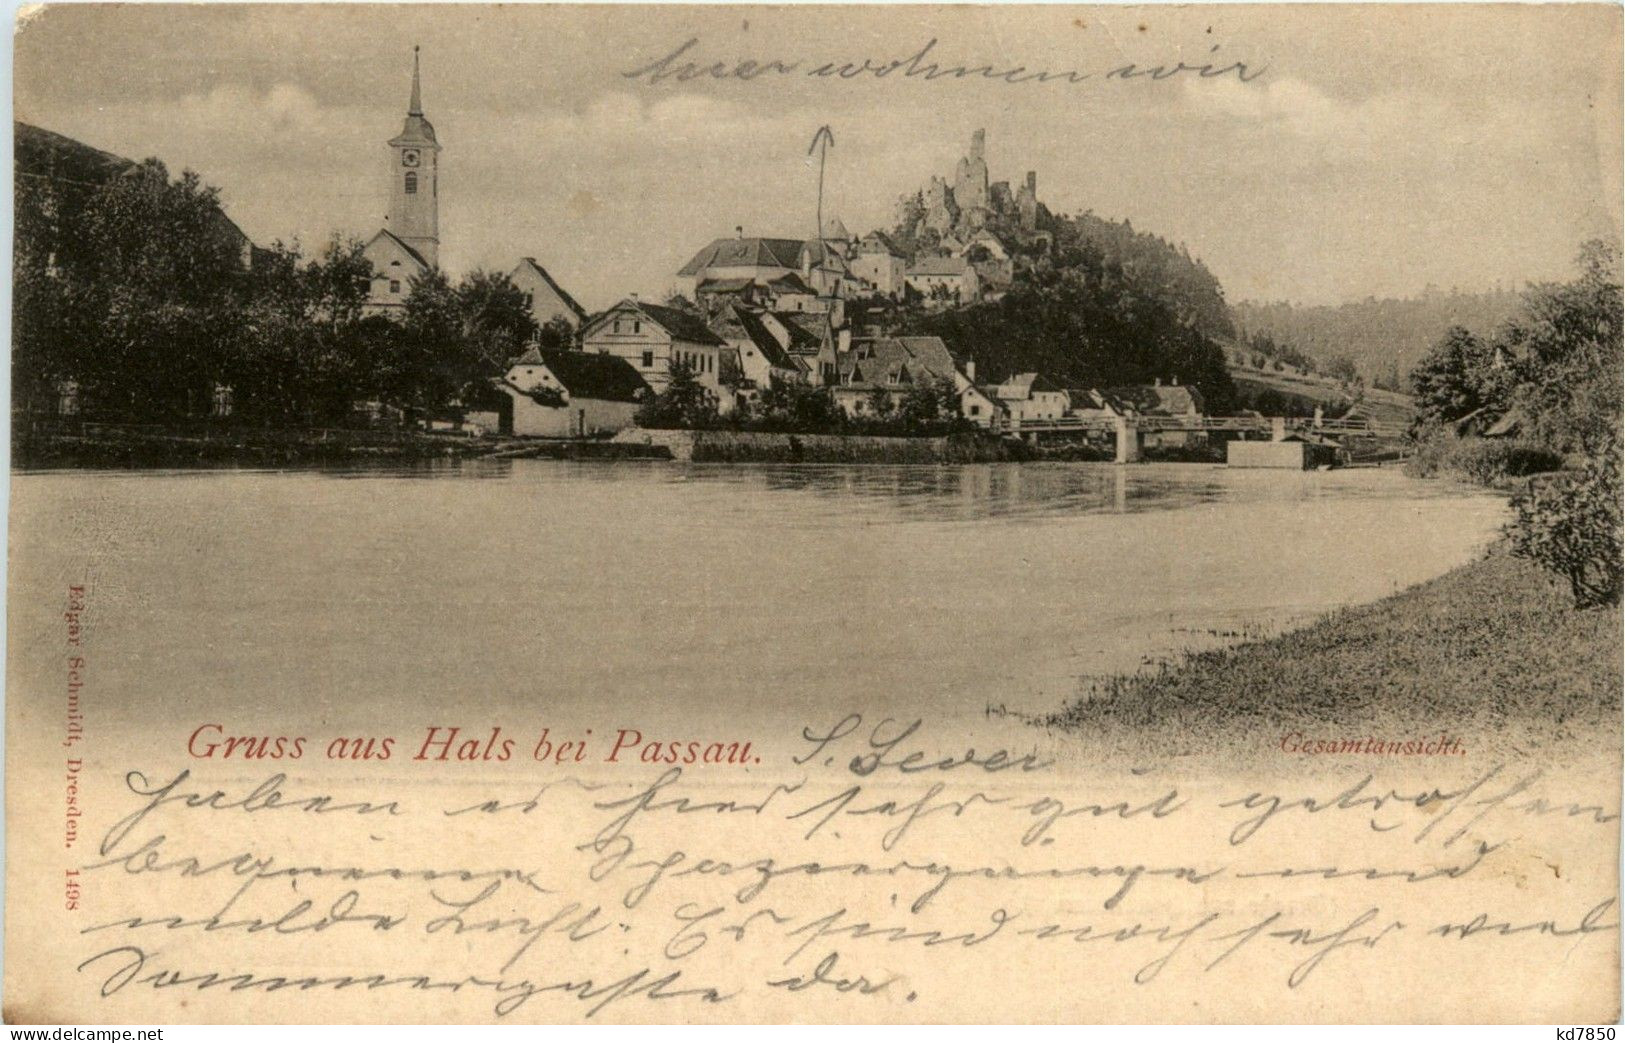 hier wohnen wir
Gruss aus Hals bei Passau.
Gesamtansicht.
haben es hier sehr gut getroffen
bequeme Spaziergänge und
milde Luft. Es sind noch sehr viel
Sommergäste da.
Edgar Schmidt, Dresden. 1498
kd7850